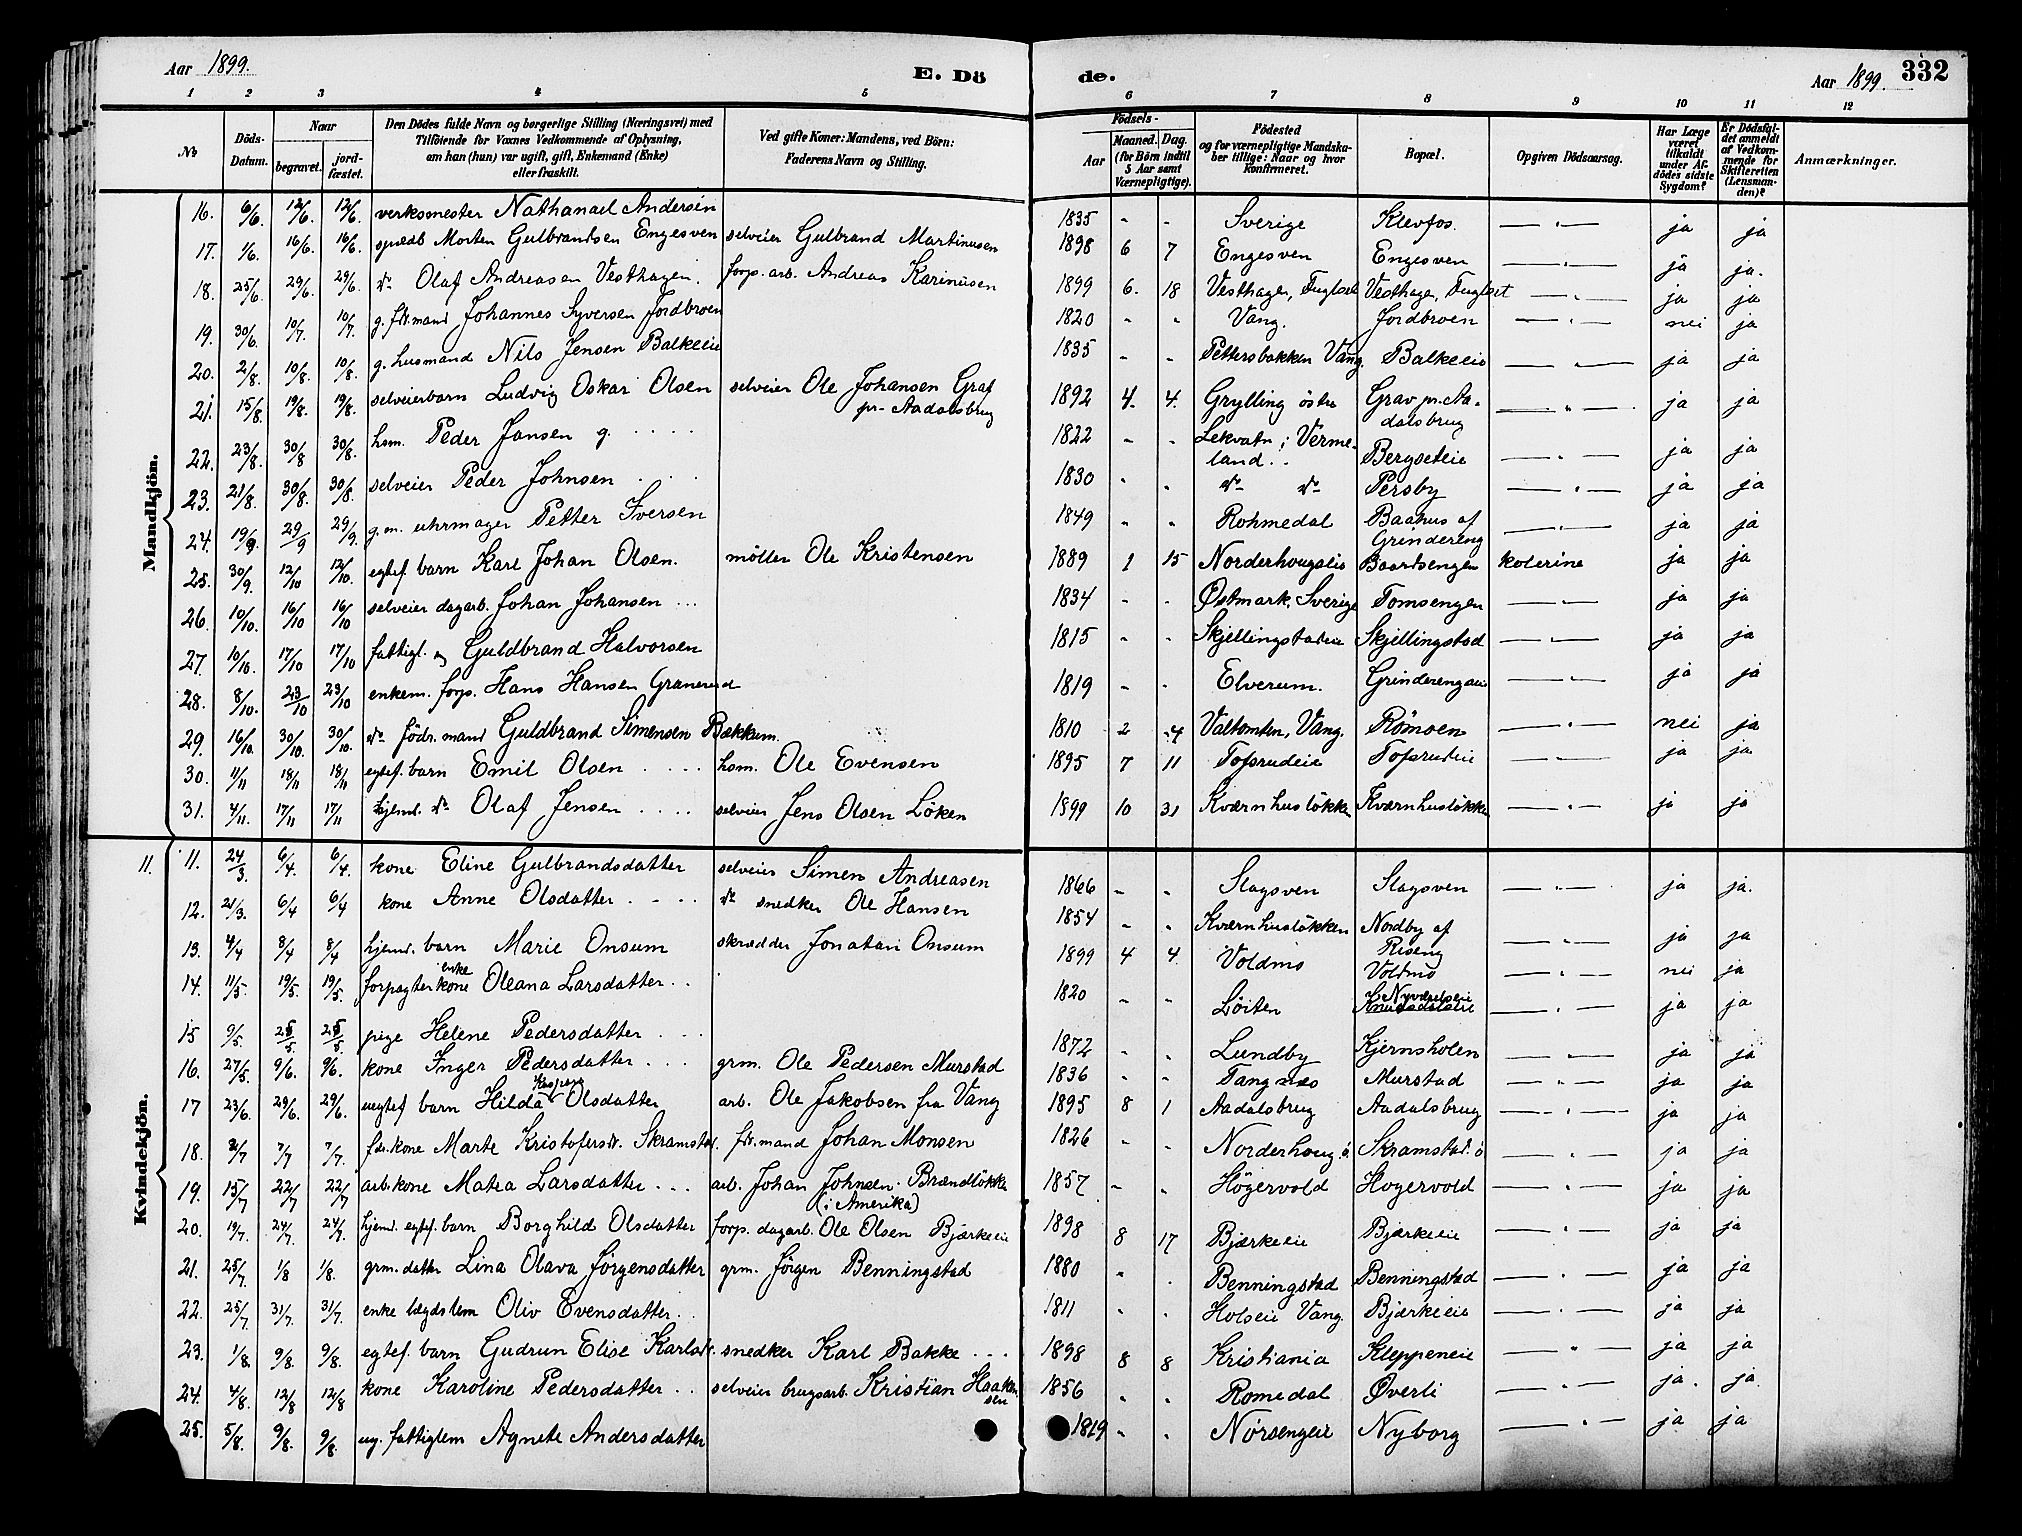 Aar 1899. E. Dö de. Aar 1899. 332
1 2 3 4 5 6 7 8 9 10 11 12
No Döds-Datum. Naar begravet. jordfæstet. Den Dödes fulde Navn og borgerlige Stilling (Næringsvei) med Tilföiende for Voxnes Vedkommende af Oplysning, om han (hun) var ugift, gift, Enkemand (Enke) eller fraskilt. Ved gifte Koner: Mandens, ved Börn: Faderens Navn og Stilling. Födsels- Aar Maaned. Dag. (for Börn indtil 5 Aar samt Værnepligtige). Födested og for værnepligtige Mandskaber tillige: Naar og hvor konfirmeret. Bopæl. Opgiven Dödsaarsag. Har Læge været tilkaldt under Afdödes sidste Sygdom? Er Dödsfaldet anmeldt af Vedkommende for Skifteretten (Lensmanden)? Anmærkninger.
Mandkjön.
16. 6/6. 12/6. 12/6. verksmester Nathanael Andersén 1835 - - Sverige Klevfos. — " — ja ja
17. 1/6. 16/6. 16/6. spædb Morten Gulbrandsen Engesven selveier Gulbrand Martinusen 1898 6 7 Engesven Engesven — " — ja ja.
18. 25/6. 29/6. 29/6. do Olaf Andreasen Vesthagen. forp. arb. Andreas Karinusen 1899 6. 18 Vesthagen, Fuglset Vesthagen, Fuglset — " — ja ja
19. 30/6. 10/7. 10/7. g. fdr.mand Johannes Syversen Jordbroen 1820 " " Vang. Jordbroen — " — nei ja
20. 2/8. 10/8. 10/8. g. husmand Nils Jensen Balkeeie 1835 " " Pettersbakken Vang. Balkeeie — " — ja ja
21. 15/8. 19/8. 19/8. selveierbarn Ludvig Oskar Olsen selveier Ole Johansen Graf pr. Aadalsbrug 1892 4. 4. Grylling östre Grav pr. Aadalsbrug — " — ja ja
22. 23/8. 30/8 30/8. hsm. Peder Jansen g. 1822 - " Lekvatn i Vermeland.. Bergseteie — " — ja ja
23. 21/8. 30/8. 30/8. selveier Peder Johnsen 1830 " " do do Persby — " — ja ja
24. 19/9. 29/9 29/9. g.m. uhrmager Petter Iversen 1849 " " Rohmedal Baahus af Grindereng — " — ja ja
25. 30/9. 12/10 12/10. egtef. barn Karl Johan Olsen. möller Ole Kristensen 1889 1 15 Norderhougseie Baardsengen kolerine ja ja
26. 10/10. 16/10 16/10 selveier dagarb. Johan Johansen ... 1834 - - Østmark, Sverige Tomsengen — " — ja ja
27. 10/10. 17/10 17/10 fattigl. Guldbrand Halvorsen 1815 - - Skjellingstadeie Skjellingstad — " — ja ja
28. 8/10. 23/10 23/10 enkem. forp. Hans Hansen Granerud 1819 - - Elverum. Grinderengeie — " — ja ja
29. 16/10. 30/10. 30/10. do födr. mand Guldbrand Simensen Bækkum. 1810 2 24 Valtomten, Vang. Römoen — " — nei ja
30. 11/11 18/11 18/11 egtef. barn Emil Olsen .... hsm. Ole Evensen 1895 7 11 Tofsrudeie Tofsrudeie — " — ja ja
31. 4/11. 17/11 17/11 hjemd. do Olaf Jensen .... selveier Jens Olsen Löken 1899 10 31 Kværnhuslökken Kværnhuslökken — " — ja ja
Kvindekjön.
11. 11. 24/3. 6/4. 6/4. kone Eline Gulbrandsdatter selveier Simen Andreasen 1866 - " Slagsven Slagsven — " — ja ja.
12. 21/3. 6/4 6/4 kone Anne Olsdatter .... do snedker Ole Hansen 1854 - " Kværnhuslökken Nordby af Riseng — " — ja ja
13. 4/4 8/4 8/4 hjemd. barn Marie Onsum skrædder Jonatan Onsum 1899 4 4. Voldmo Voldmo — " — nei ja
14. 11/5. 19/5. 19/5. forpagterkone enke Oleana Larsdatter .. 1820 - " Löiten Nyværelseie — " — ja ja
15 9/5. 25/5. 25/5. pige Helene Pedersdatter ... 1872 " " Lundby Kjernsholen — " — ja ja
16. 27/5. 9/6. 9/6. kone Inger Pedersdatter ... grm. Ole Pedersen Murstad 1836 " " Tangnæs Murstad — " — ja ja
17 23/6. 29/6. 29/6. uegtef barn Hilda Kaspara Olsdatter arb. Ole Jakobsen fra Vang 1895 8 1 Aadalsbrug Aadalsbrug — " — ja ja
18. 2/7 7/7 7/7. fdr.kone Marte Kristofersdr. Skramstad. fdr.mand Johan Monsen 1826 - " Norderhoug. ö Skramstad. ö — " — ja ja
19. 15/7 22/7 22/7 arb. kone Matea Larsdatter ... arb. Johan Johnsen Brændlökken (i Amerika) 1857 " " Högervold Hogervold — " — ja ja
20. 19/7. 24/7. 24/7. hjemd. egtef. barn Borghild Olsdatter forp. dagarb. Ole Olsen Bjærkeeie 1898 8 17 Bjærkeeie Bjærkeeie — " — ja ja
21. 25/7. 1/8 1/8. grm. datter Lina Olava Jörgensdatter grm. Jörgen Benningstad 1880 " " Benningstad Benningstad — " — ja ja
22. 25/7. 31/7. 31/7. enke lægdslem Oliv Evensdatter .. 1811 " " Holseie Vang. Bjærkeeie — " — ja ja
23. 1/8. 9/8. 9/8. egtef. barn Gudrun Elise Karlsdr. snedker Karl Bakke ... 1898 8 8 Kristiania Kleppeneie — " — ja ja
24. 4/8. 12/8 12/8 kone Karoline Pedersdatter .. selveier brugsarb. Kristian Haakensen 1856 " " Romedal Øverli — " — ja. ja.
25. 5/8. 9/8. 9/8. ug. fattiglem Agnete Andersdatter 1819 " " Nörsengeie Nyborg — " — ja ja